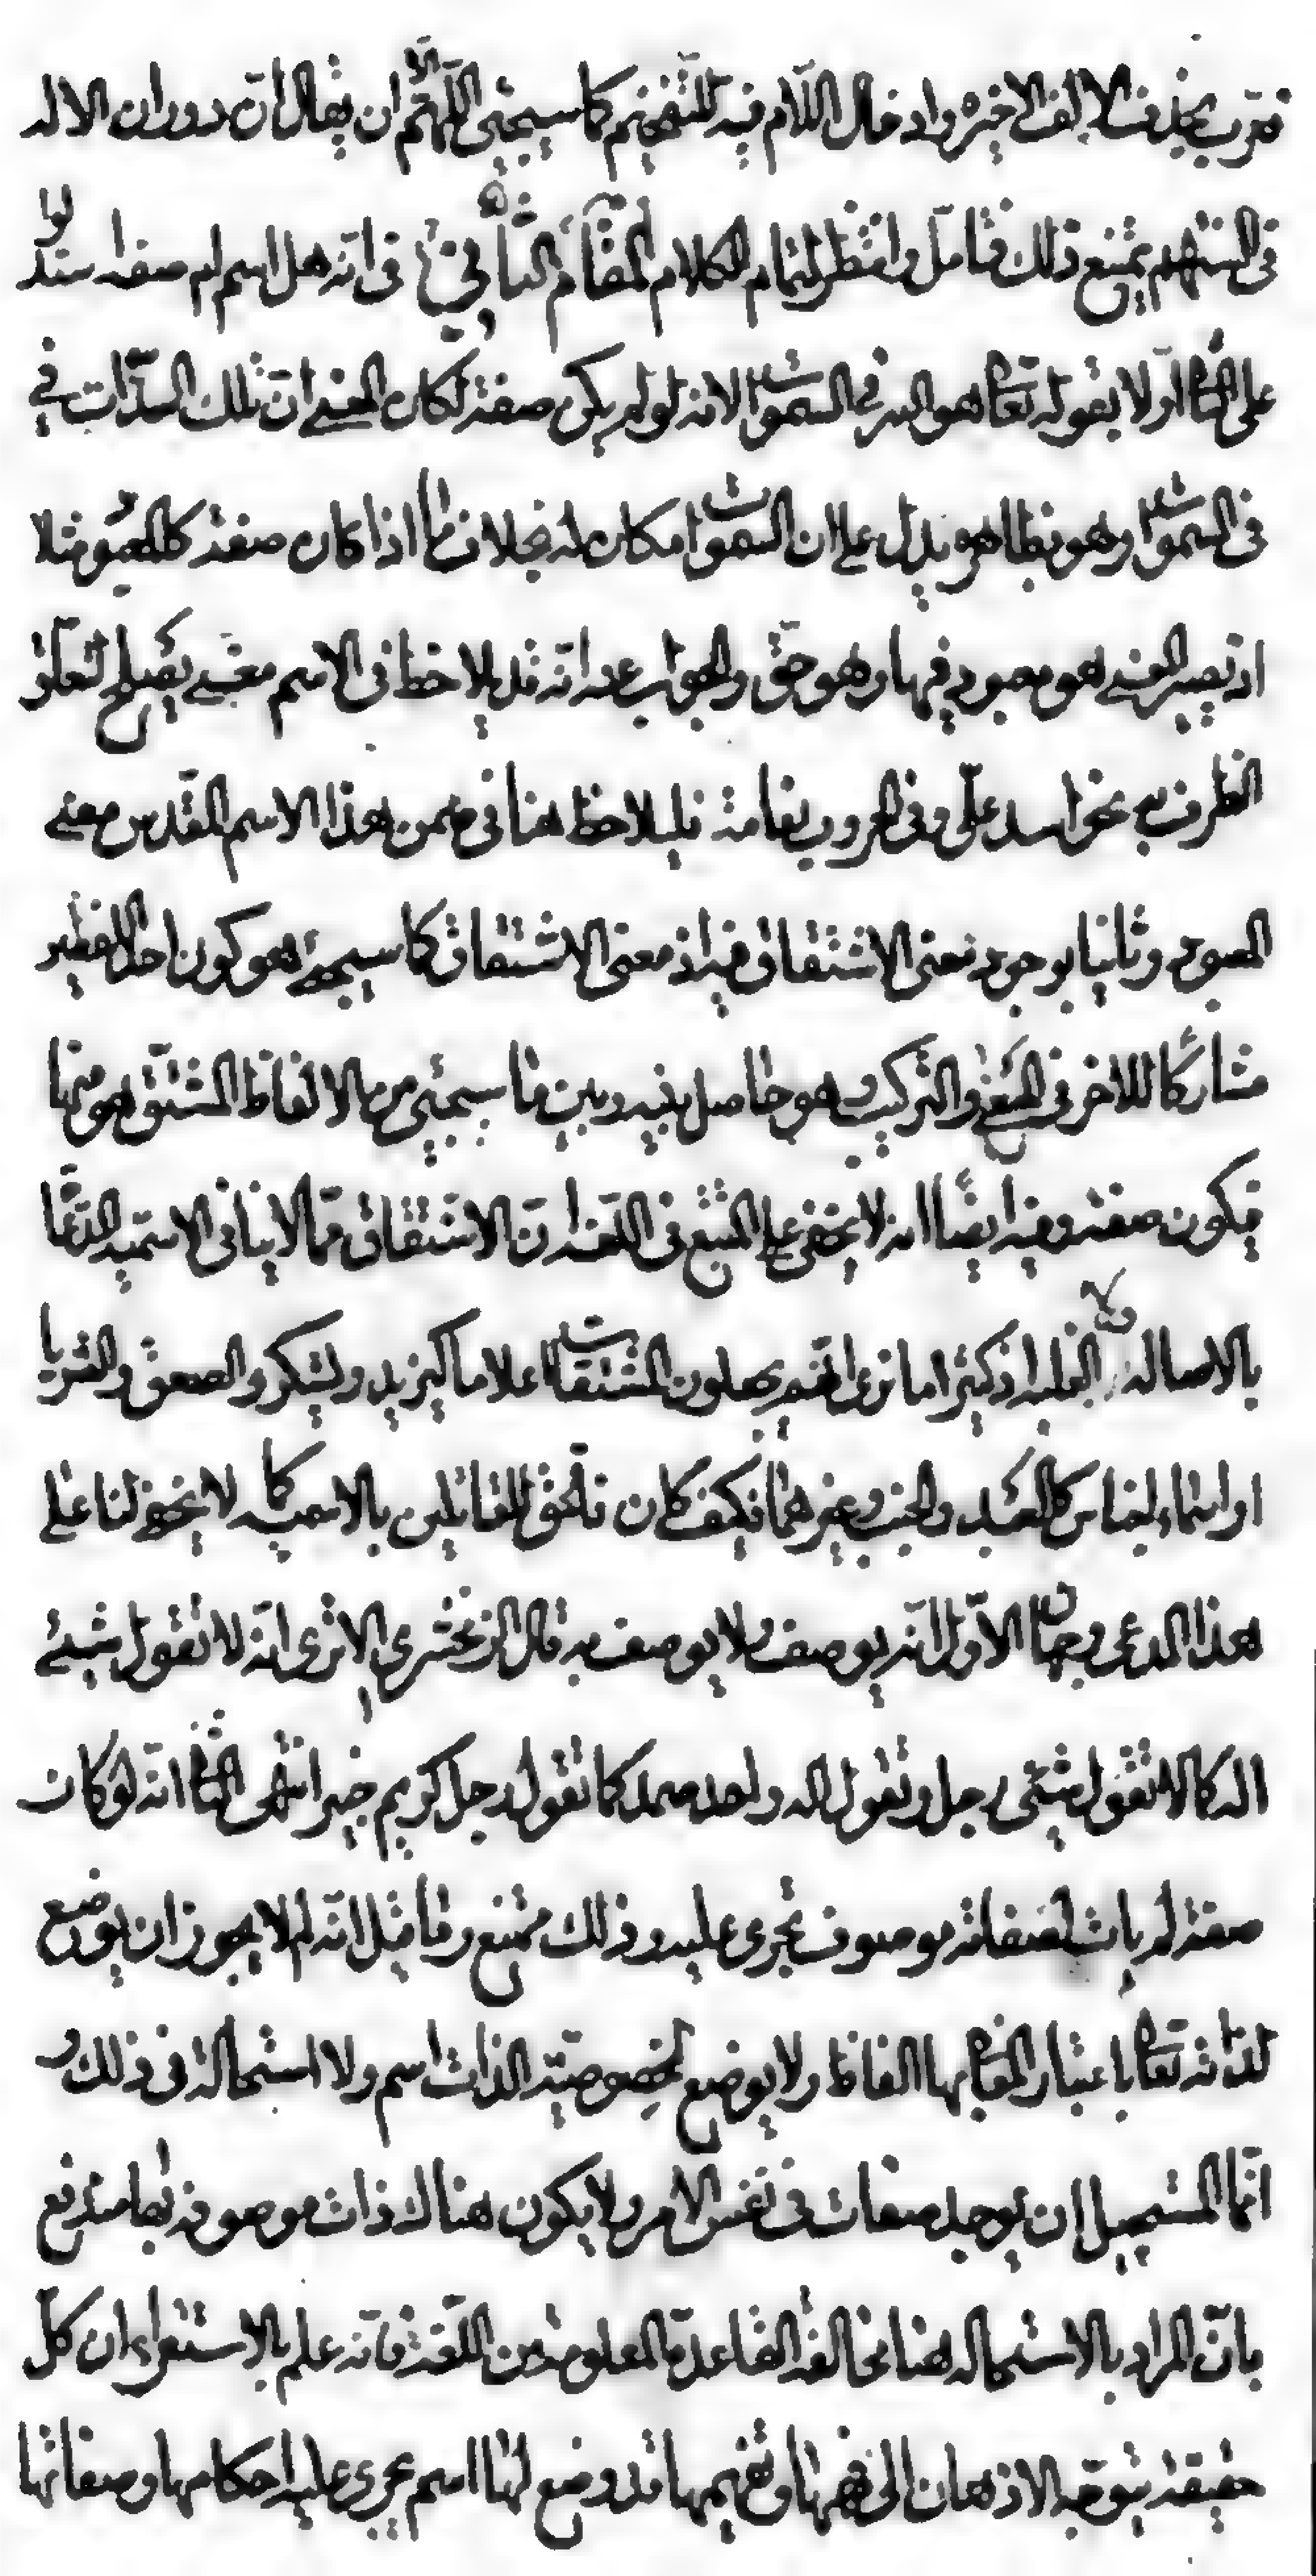 فعرب بحذف الالف الاخيره وادخال اللام فيه للتفخيم كما سيجئ اللهم الا ان يقال ان دوران الاله
فى السنتهم يمنع ذلك فتامل وانتظر لتمام الكلام المقام الثانى فى انه هل اسم ام صفه استدلوا
على الثانى اولا بقوله تعالى هو الله فى السموات لانه لو لم يكن صفة لكان المعنى ان تلك الذات فى
فى السموات وهو بظاهره يدل على ان السموات مكان له بخلاف ما اذا كان صفة كالمعبود مثلا
اذ يصير المعنى هو معبود فيها وهو حق والجواب عنه انه قد يلاحظ فى الاسم معنى يصلح لتعلق
الظرف به نحو اسد على وفى الحروب نعامة فليلاحظ هنا فى ضمن هذا الاسم المقدس معنى
المعبود وثانيا بوجود معنى الاشتقاق فيه اذ معنى الاشتقاق كما سيجئ هو كون احد اللفظين
مشاركا للاخر فى المعنى والتركيب وهو حاصل بينه وبين ما سيجئ من الالفاظ المشتق هو منها
فيكون صفة وفيه ايضا انه لا يخفى على المتتبع فى اللغه ان الاشتقاق مما لا ينافى الاسميه المدعاة
بالاصاله ولا الغلبه اذ كثيرا ما نرى انهم يجعلون المشتقات اعلاما كيزيد ويشكر والصعق والثريا
او اسماء اجناس كالعبد والجنب وغيرهما فكيف كان فالحق للقائلين بالاسميه كما لا يخفى لنا على
هذا المدعى وجهان الاول انه يوصف ولا يوصف به قال الزمخشرى الا ترى انه لا تقول شئ
اله كما لا تقول شئ رجل وتقول اله واحد صمد كما تقول رجل كريم خير انتهى الثانى انه لو كان
صفة لم يات لصفاته موصوف تجرى عليه وذلك ممتنع وما قيل انه لم لا يجوز ان يوضع
لذاته تعالى باعتبار المعانى بها الفاظ ولا يوضع لخصوصية الذات اسم ولا استحالة فى ذلك و
انما المستحيل ان يوجد صفات فى نفس الامر ولا يكون هناك ذات موصوفه بها مندفع
بان المراد بالاستحاله هنا مخالفة القاعدة المعلومة من اللغة فانه علم بالاستقراء ان كل
حقيقة يتوجه الاذهان الى فهمها وتفهيمها قد وضع لها اسم يجرى عليه احكامها وصفاتها